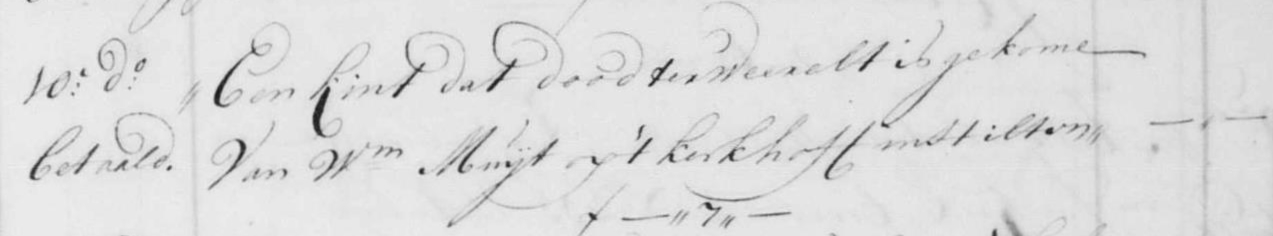 10: do „ Een kint dat dood ter weerelt is gekome —
betaald. Van Wm Muijt op't kerkhoff in stilten „ — „ —
f — „ 7 „ —